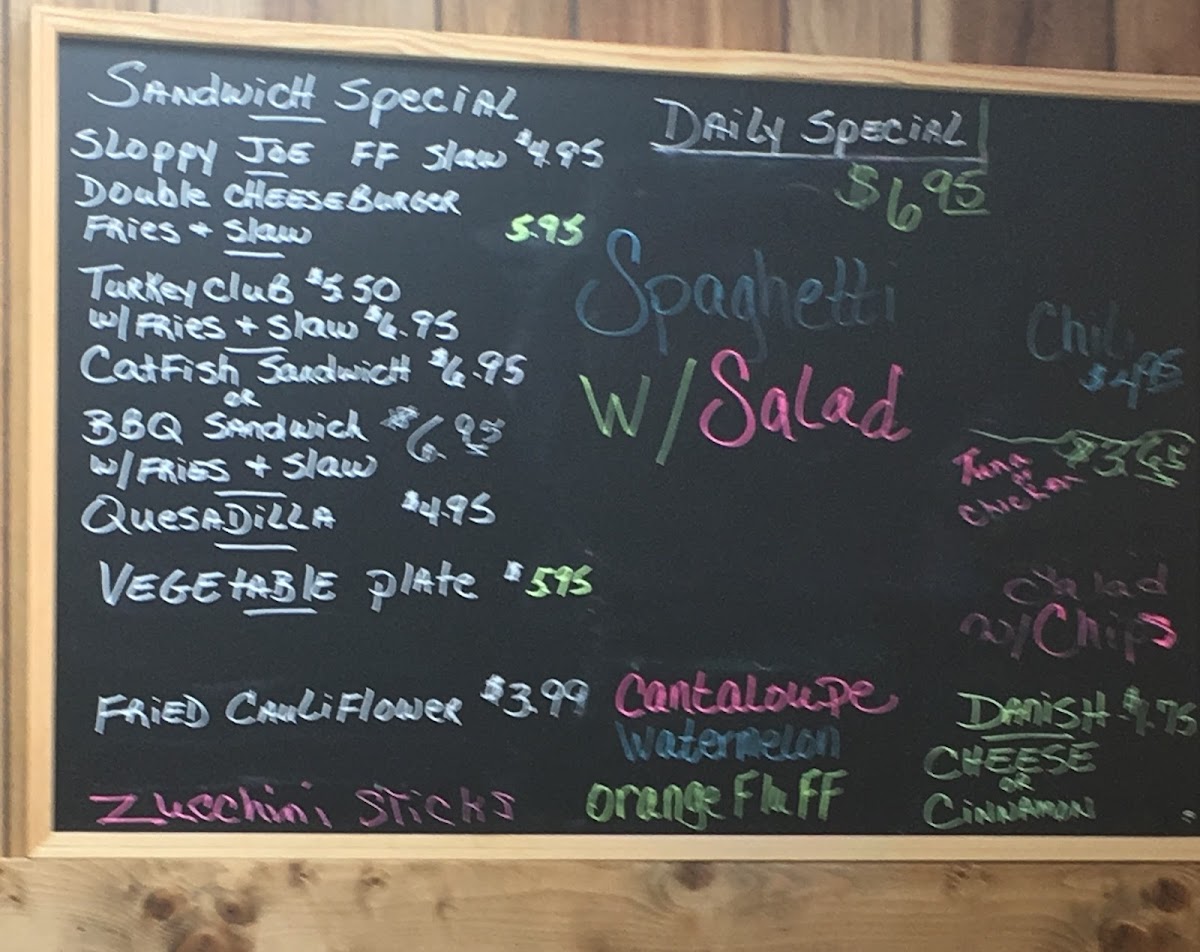 SANDWICH SPECIAL
SLOPPY JOE FF SLAW $4.95
DOUBLE CHEESEBURGER
FRIES + SLAW 5.95
TURKEY CLUB $5.50
W/FRIES + SLAW $6.95
CATFISH SANDWICH $6.95
OR
BBQ SANDWICH $6.95
W/FRIES + SLAW
QUESADILLA $4.95
VEGETABLE PLATE $595
FRIED CAULIFLOWER $3.99
ZUCCHINI STICKS
DAILY SPECIAL
$6.95
Spaghetti
W/Salad
Cantaloupe
Watermelon
Orange Fluff
Chili
$4.95
Tuna
Chicken
Salad
w/Chips
DANISH
CHEESE
OR
CINNAMON